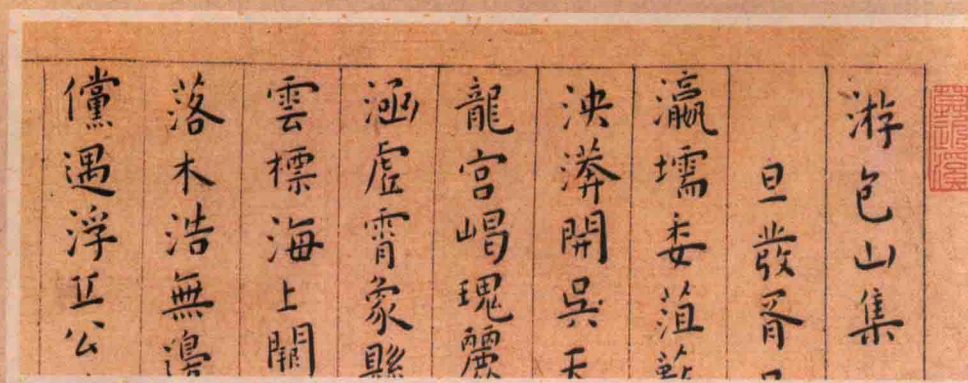 游包山集
旦發胥
瀛壖委菹
泱漭開吳
龍宮嵑瑰麗
涵虛霄象縣
雲標海上關
落木浩無邊
儻遇浮丘公